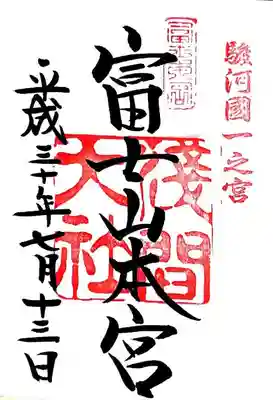 駿河國一之宮
富士山本宮
淺間大社
平成三十年七月十三日